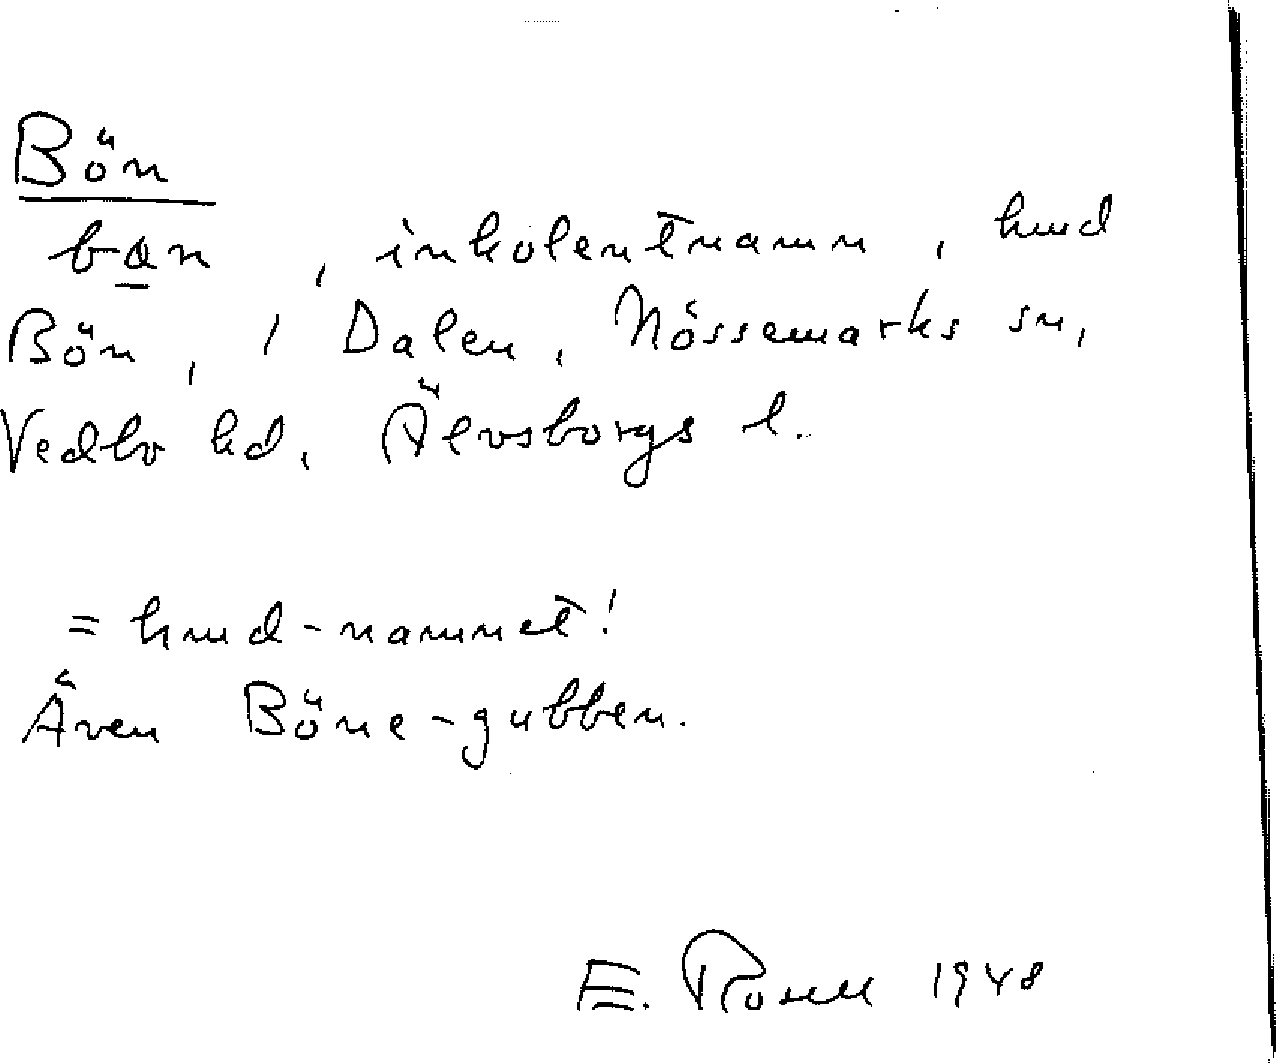 Bön
bɷn, inkolentnamn, hmd
Bön, 1 Dalen, Nössemarks sn,
Vedbo hd, Älvsborgs l.
= hmd-namnet!
Även Böne-gubben.
E. Rosell 1948